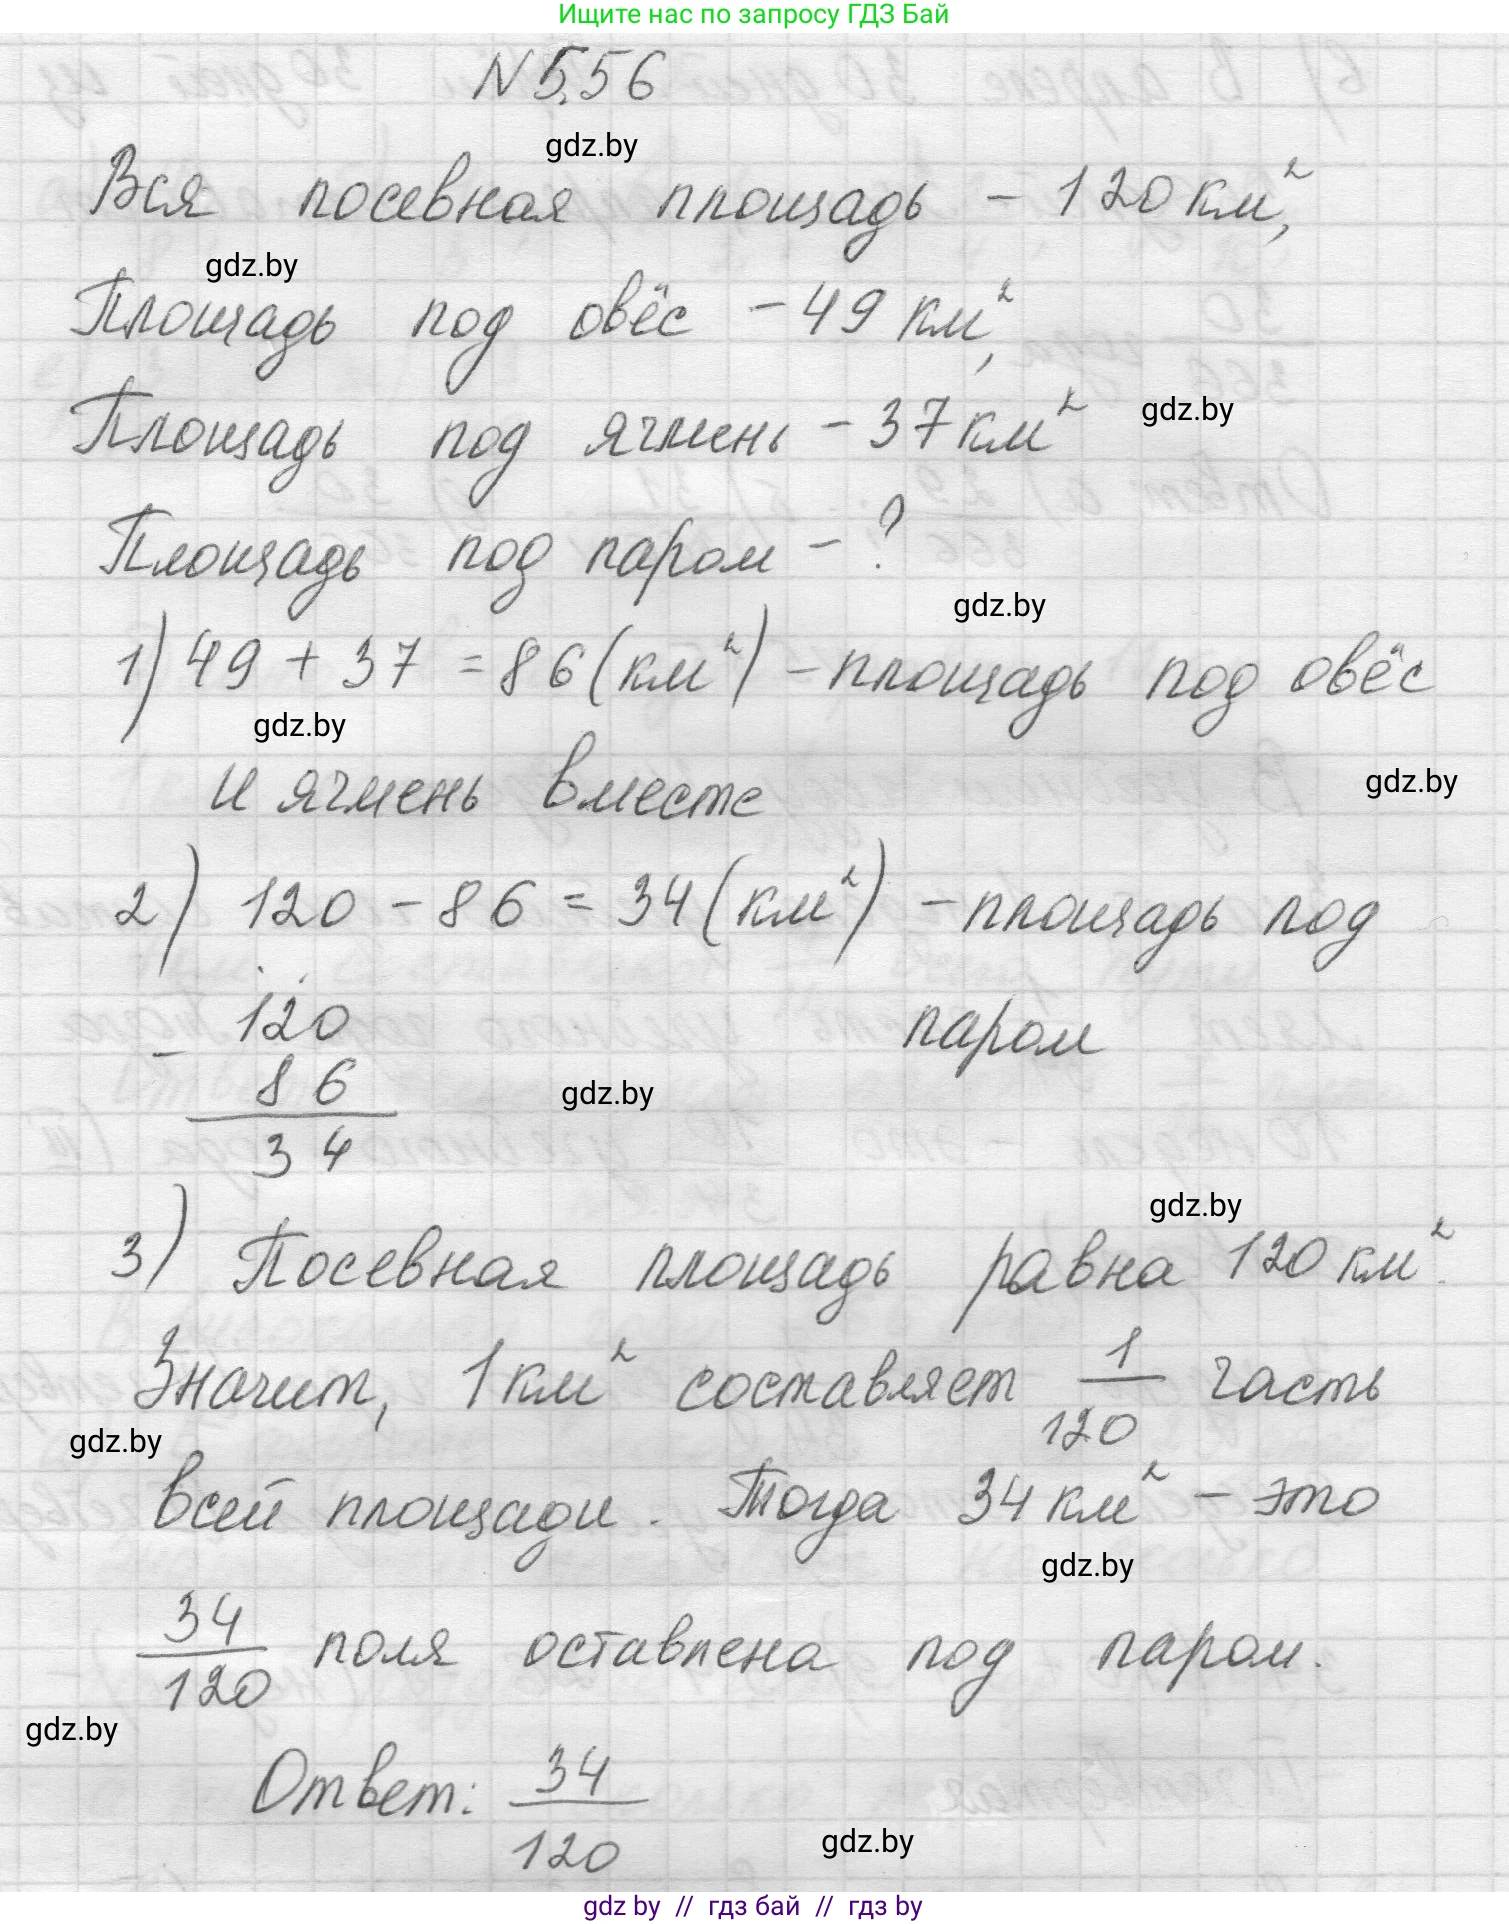 Ищите нас по запросу ГДЗ Бай
N 5.56
gdz.by
Вся посевная площадь - 120 км²,
gdz.by
Площадь под овёс - 49 км²,
Площадь под ячмень - 37 км²
gdz.by
Площадь под паром - ?
gdz.by
1) 49 + 37 = 86 (км²) - площадь под овёс
gdz.by
и ячмень вместе
gdz.by
2) 120 - 86 = 34 (км²) - площадь под
паром
120
-
86
gdz.by
34
gdz.by
3) Посевная площадь равна 120 км².
Значит, 1 км² составляет 1/120 часть
gdz.by
всей площади. Тогда 34 км² - это
gdz.by
34/120 поля оставлена под паром.
gdz.by
Ответ: 34/120
gdz.by
gdz by // гдз бай // гдз by